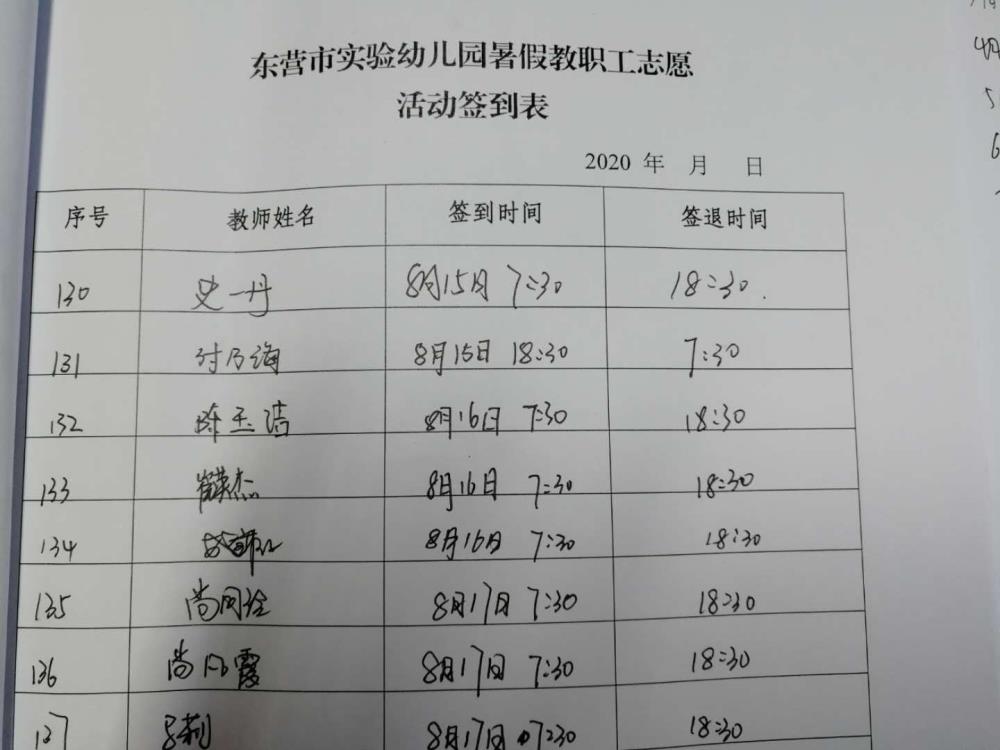 东营市实验幼儿园暑假教职工志愿
活动签到表
2020 年 月 日
序号 教师姓名 签到时间 签退时间
130 史一丹 8月15日 7:30 18:30
131 8月15日 18:30 7:30
132 陈玉洁 8月16日 7:30 18:30
133 8月16日 7:30 18:30
134 8月16日 7:30 18:30
135 8月17日 7:30 18:30
136 尚凤霞 8月17日 7:30 18:30
137 8月17日 07:30 18:30